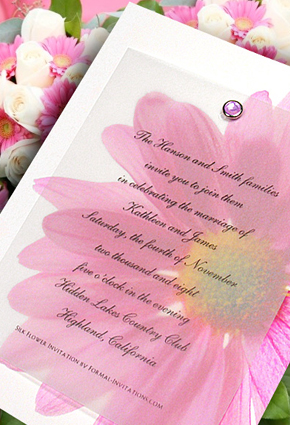 The Hanson and Smith families
invite you to join them
in celebrating the marriage of
Kathleen and James
Saturday, the fourth of November
two thousand and eight
five o'clock in the evening
Hidden Lakes Country Club
Highland, California
Silk Flower Invitation by Formal-Invitations.com